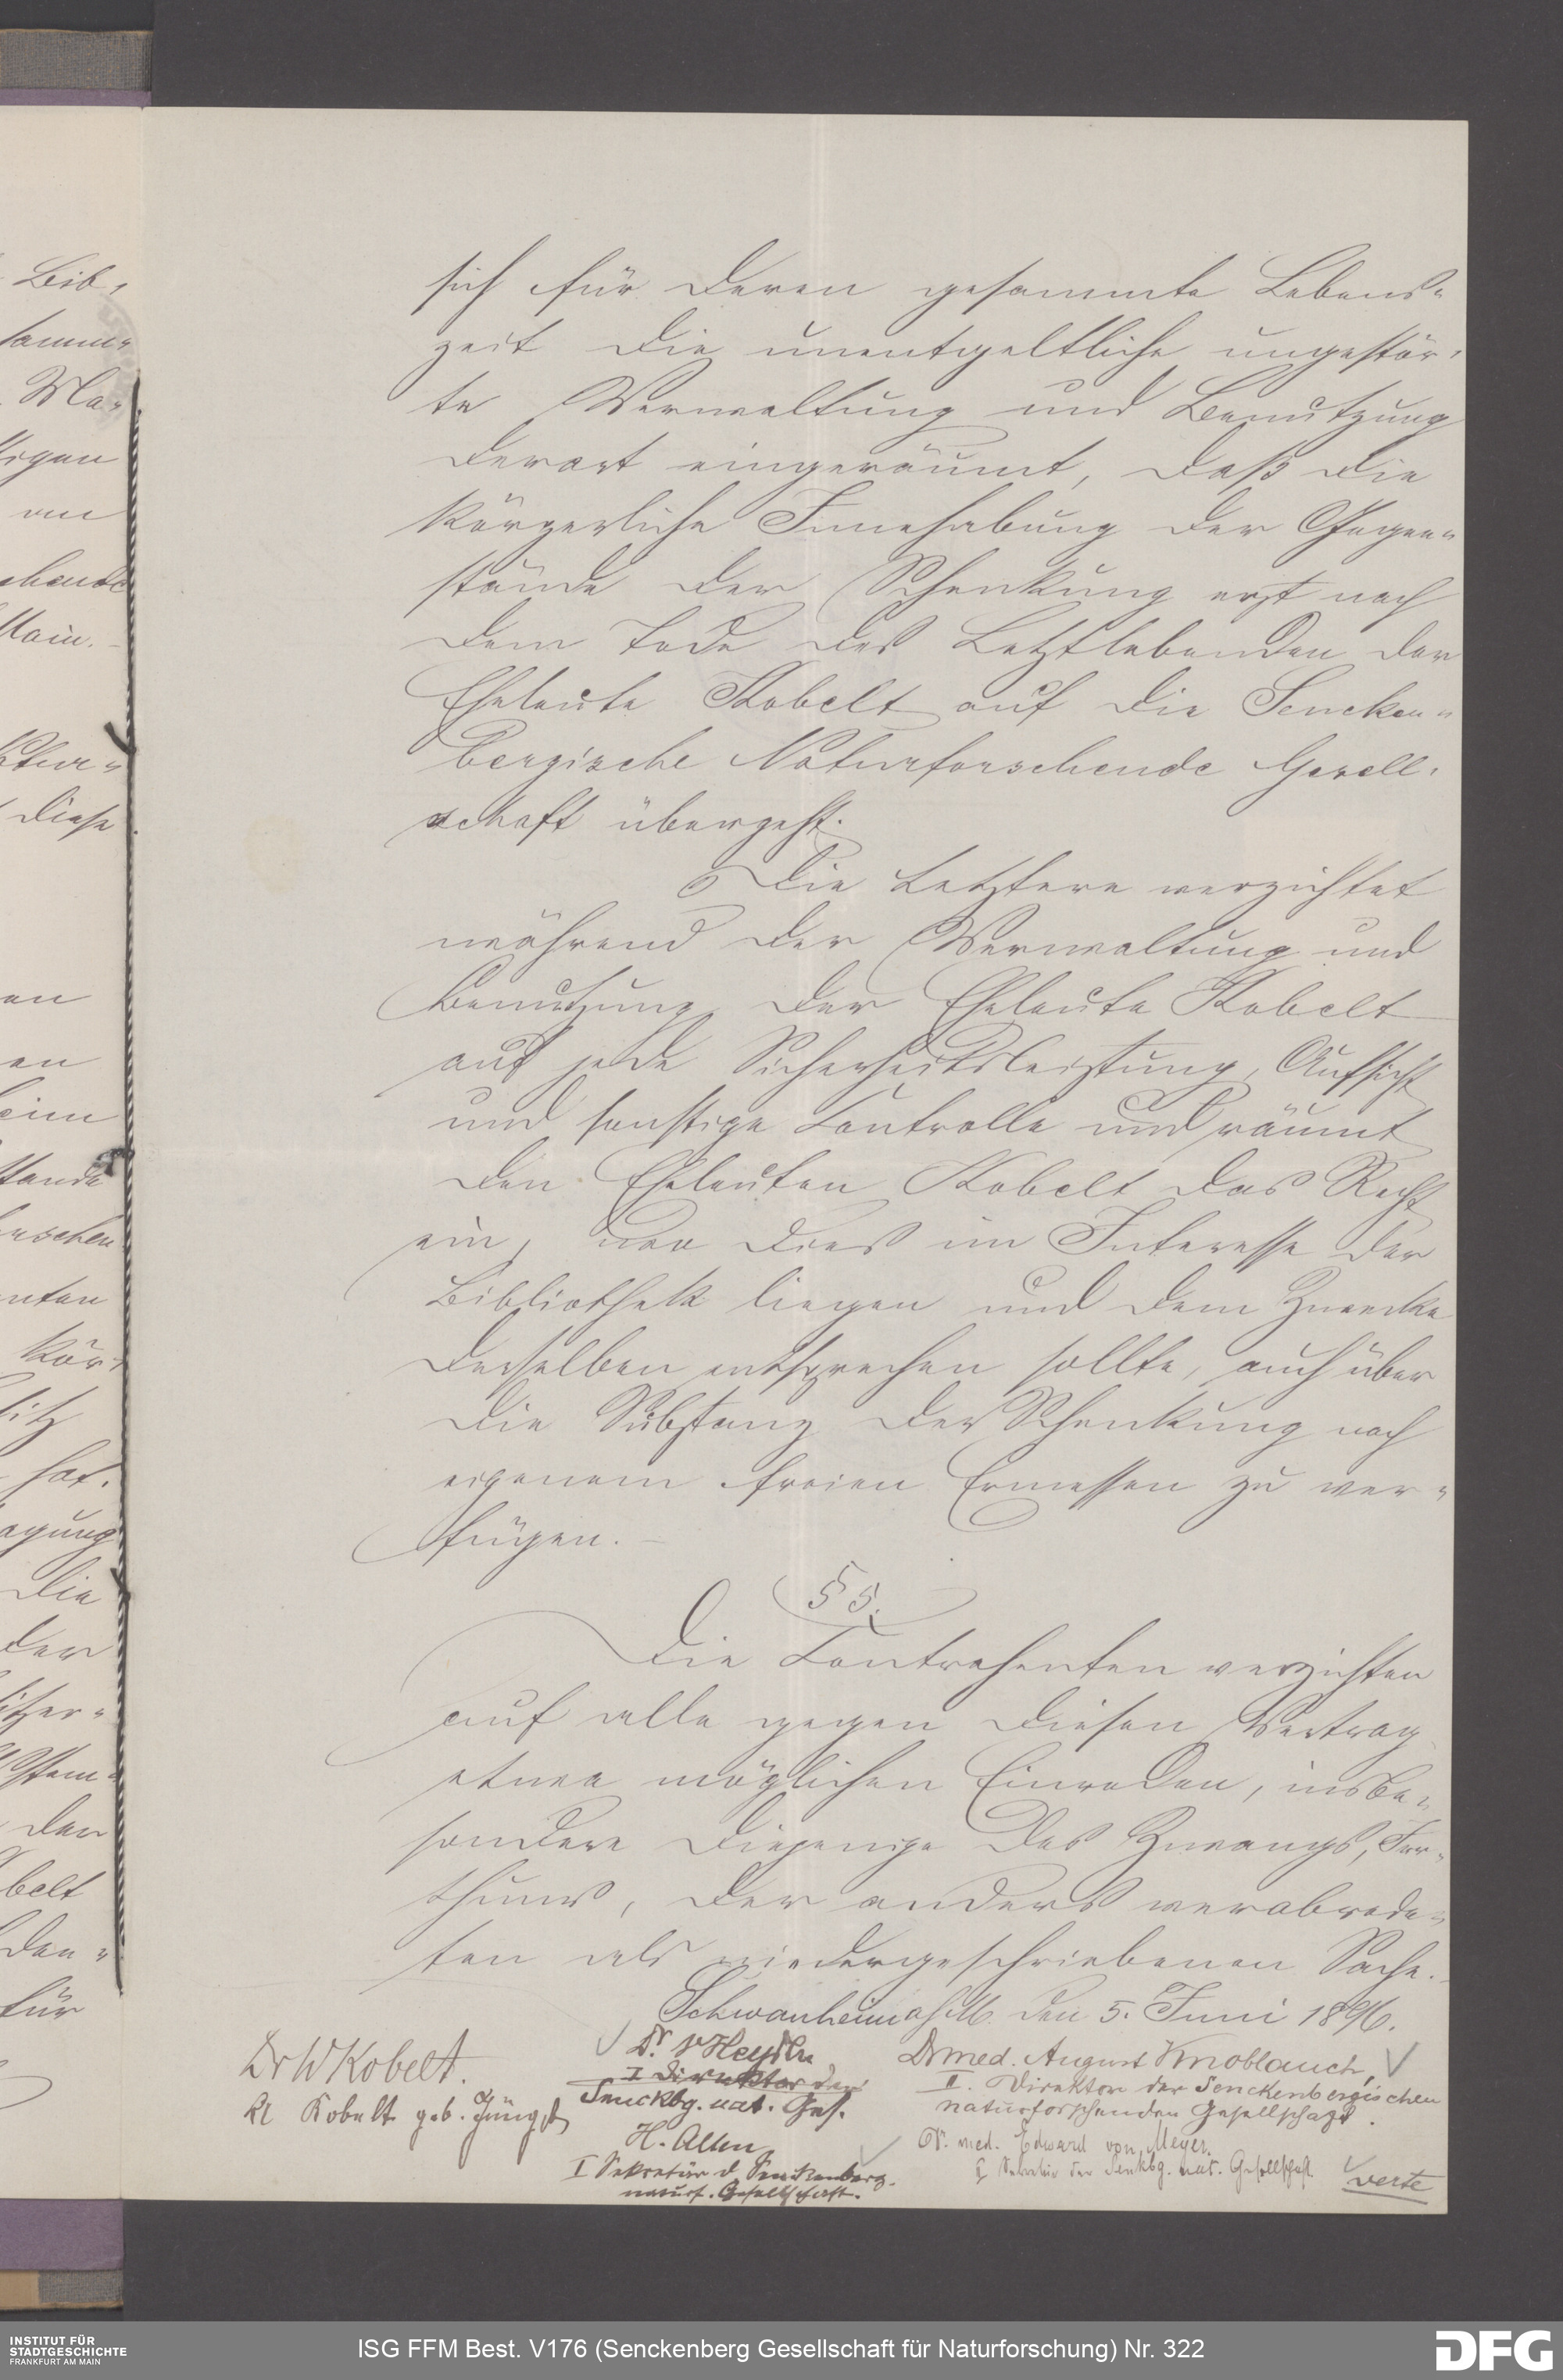 sich für deren gesammte Lebens-
zeit die unentgeltliche ungestör-
te Verwaltung und Benutzung
derart eingeräumt, daß die
körperliche Innehabung der Gegen-
stände der Schenkung erst nach
dem Tode des Letztlebenden der
Eheleute Kobelt auf die Sencken-
bergische Naturforschende Gesell-
schaft übergeht.
Die Letztere verzichtet
während der Verwaltung und
Benutzung der Eheleute Kobelt
auf jede Sicherheitsleistung, Aufsicht
und sonstige Controlle und räumt
den Eheleuten Kobelt das Recht
ein, wo dies im Interesse der
Bibliothek liegen und dem Zwecke
derselben entsprechen sollte, auch über
die Substanz der Schenkung nach
eigenem freien Ermessen zu ver-
fügen.
§ 5.
Die Contrahenten verzichten
auf alle gegen diesen Vertrag
etwa möglichen Einreden, insbe-
sondere diejenige des Zwangs, Irr-
thums, der anders verabrede-
ten als niedergeschriebenen Sache.
Schwanheim a/M. den 5. Juni 1896.
Dr W Kobelt.
Kobelt geb. Jüngst
Dr. v Heyden
I Direktor der
Senckbg. nat. Ges.
H. Allen
I Sekretär d. Senckenberg.
naturf. Gesellschaft.
Dr med. August Knoblauch,
II. Direktor der Senckenbergischen
naturforschenden Gesellschaft.
Dr. med. Edward von Meyer.
Sekretär der Senkbg. nat. Gesellschaft
verte
Bib-
Ma-
an
Main.
diese
en
en
tande
kör-
sitz
hat.
die
der
den
belt
für
INSTITUT FÜR
STADTGESCHICHTE
FRANKFURT AM MAIN
ISG FFM Best. V176 (Senckenberg Gesellschaft für Naturforschung) Nr. 322
DFG